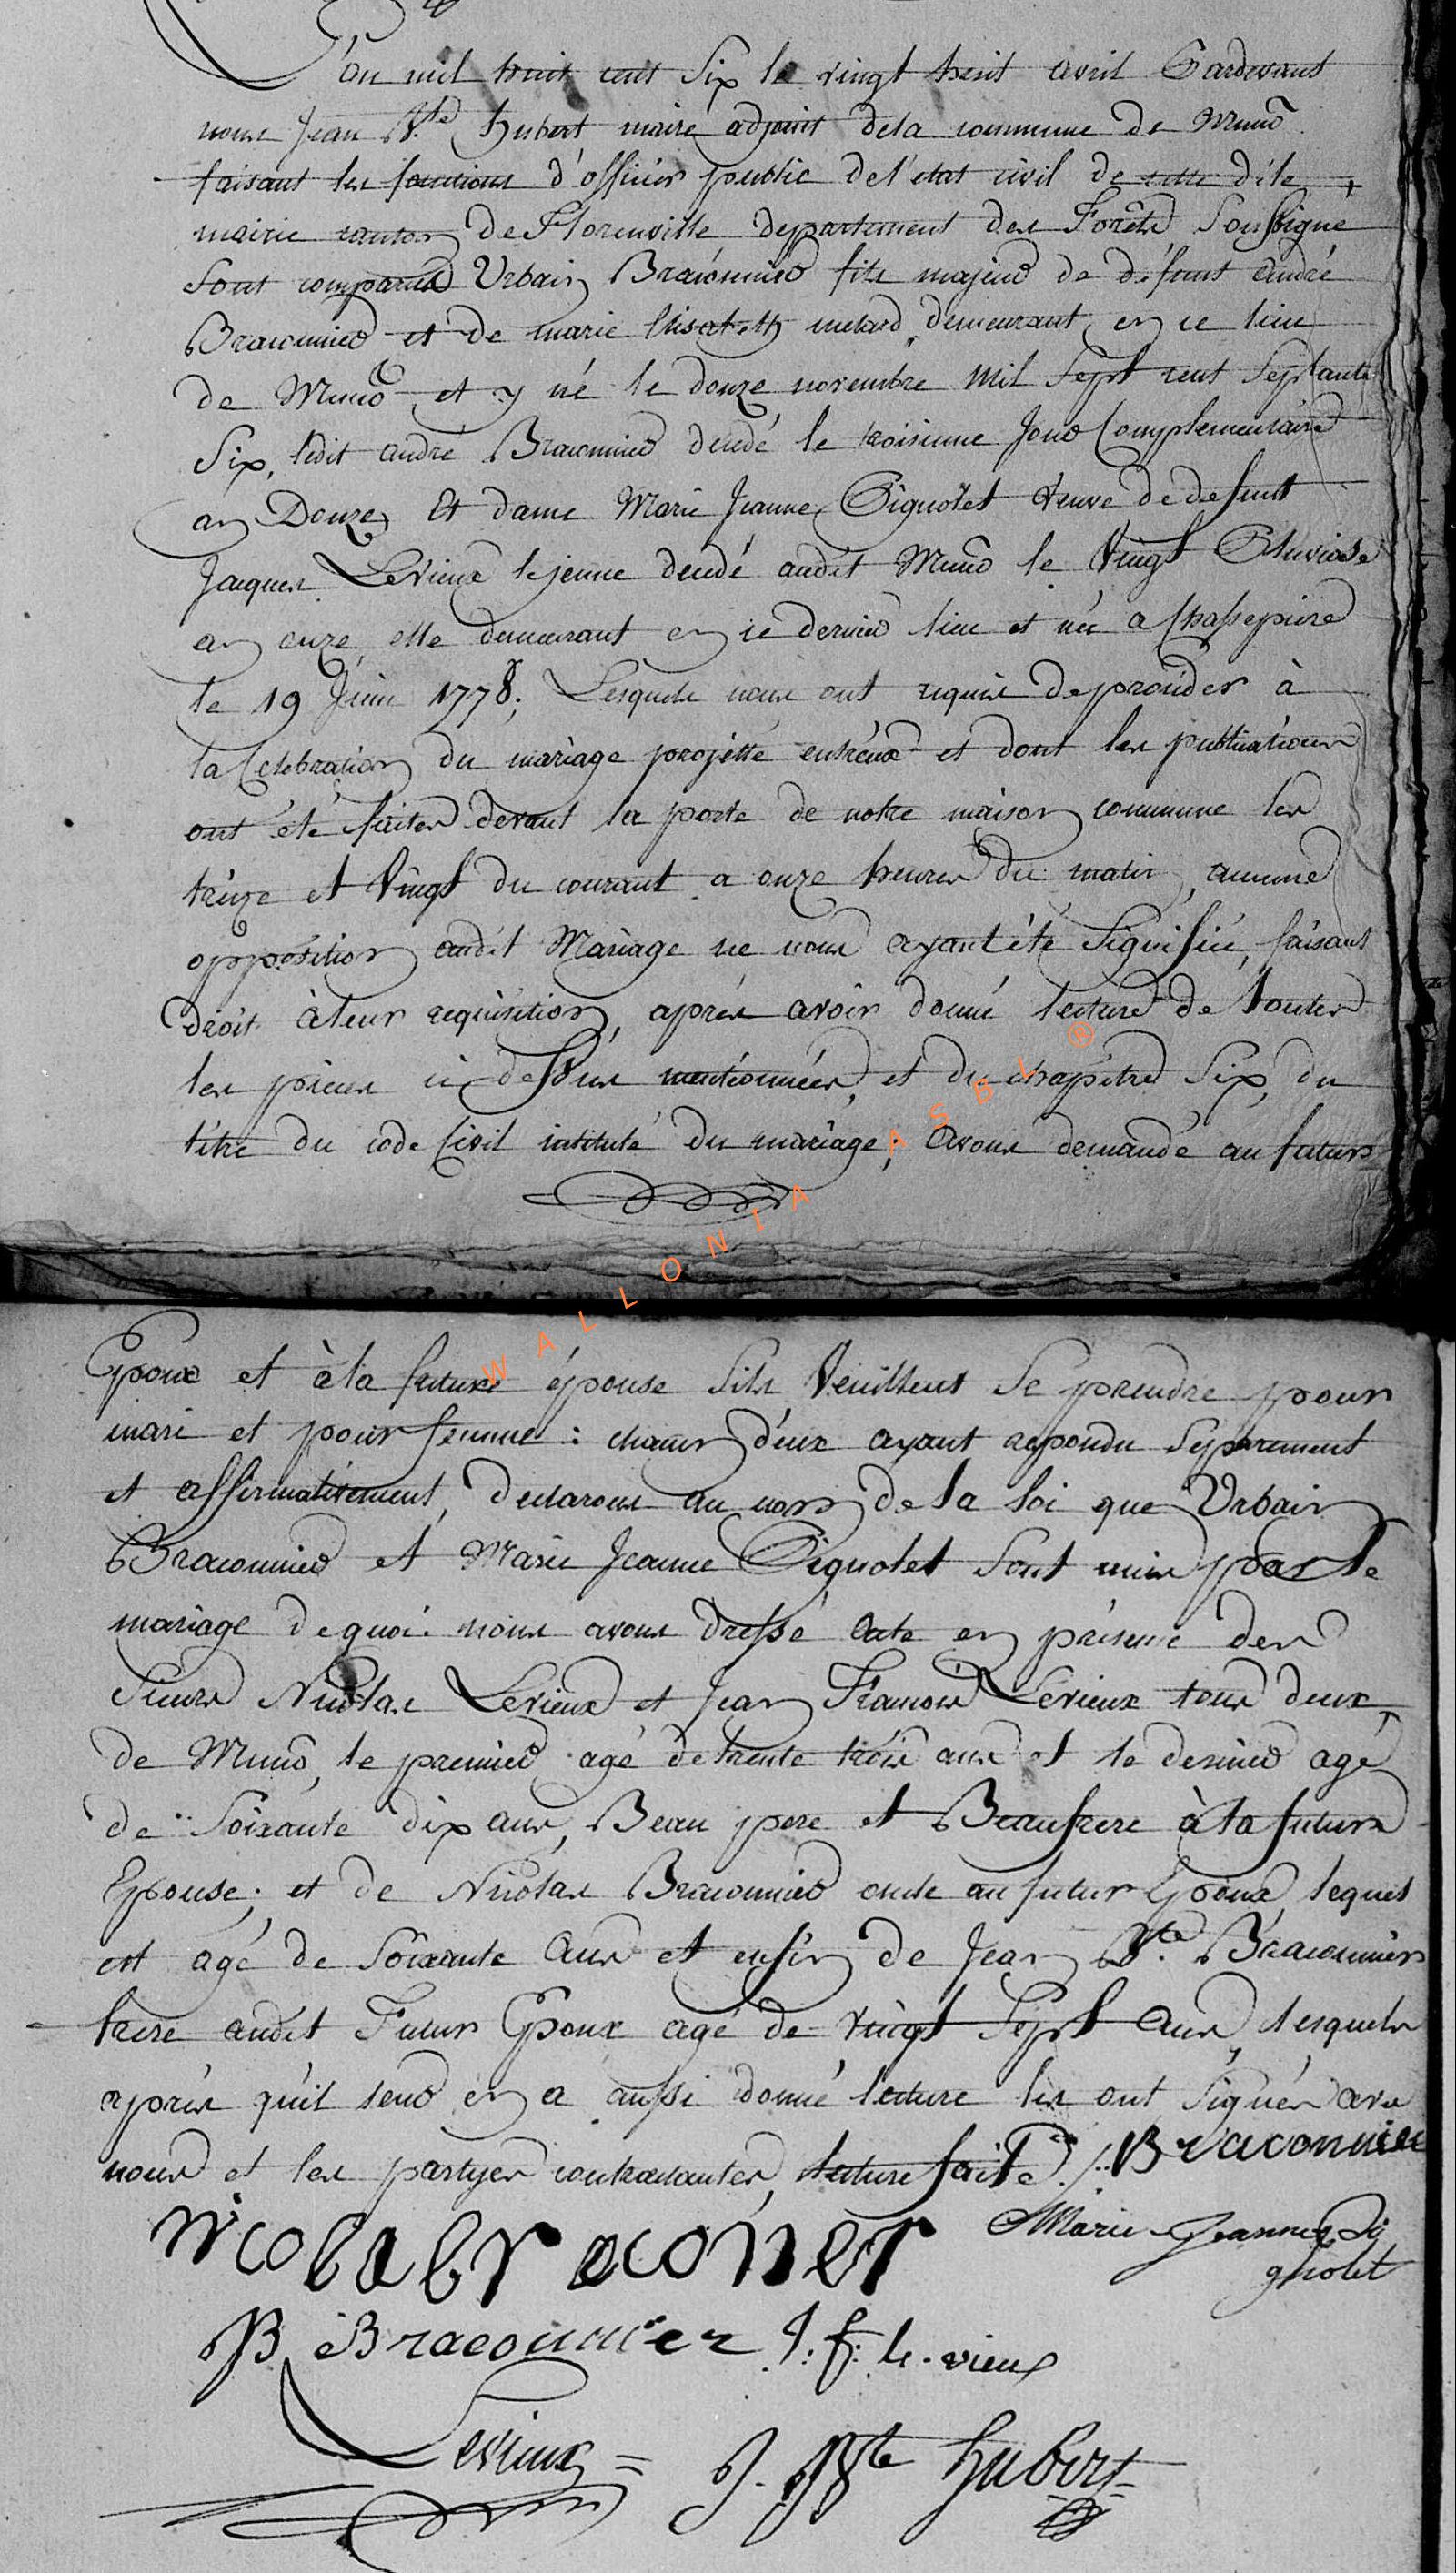 L'an mil huit cent Six le vingt huit avril Pardevant
nous Jean Bte hubert maire adjoint dela commune de Muno
faisant les fonctions d'officier public del'etat civil de cette dite
mairie canton de Florenville departement des Forêts Soussigné
Sont comparus Urbain Braconnier fils majeur de défunt andré
Braconnier et de marie Elisabeth melard demeurant en ce lieu
de Muno et y né le douze novembre mil Sept cent Septante
Six, ledit andré Braconnier decedé le troisieme Jour Complementaire
an Douze, Et dame Marie Jeanne Pignolet veuve de defunt
Jacques Levieux lejeune decedé audit Muno le Vingt Pluviose
an onze, elle demeurant en ce dernier lieu et née a Chassepierre
le 19 Juin 1778; Lesquels nous ont requis deproceder à
la Celebration du mariage projetté entréeux et dont les publications
ont été faites devant la porte de notre maison commune les
treize et Vingt du courant a onze heures du matin, aucune
opposition audit Mariage ne nous ayant été Signifiée, faisant
Droit àleur requisition, apres avoir donné lecture de toutes
les pieces ci dessus mentionnées, et du chapitre Six, du
titre du code Civil intitulé du mariage; avons demandé au futur
WALLONIA ASBL ®
Epoux et àla future épouse Sils Veuillent Se prendre pour
mari et pour femme : chacun d'eux ayant repondu Séparement
et affirmativement, declarons au nom de la loi que Urbain
Braconnier et Marie Jeanne Pignolet Sont unis par le
mariage dequoi nous avons dressé acte en présence des
Sieurs Nicolas Levieux et Jean François Levieux tous deux
de Muno, le premier agé detrente trois ans et le dernier agé
de Soixante dix ans, Beau pere et Beaufrere àla future
Epouse; et de Nicolas Braconnier oncle au futur Epoux, lequel
est agé de Soixante ans et enfin de Jean Bte Braconnier
frere audit Futur Epoux agé de vingt Sept ans, lesquels
après quil leur en a aussi donné lecture les ont Signés avec
nous et les partyes contractantes, lecture faite ./. Braconnier
Nicola braconier Marie Jeanne Pi
gnolet
JB Braconnier J: f: le. vieux
Levieux = J. Bte hubert